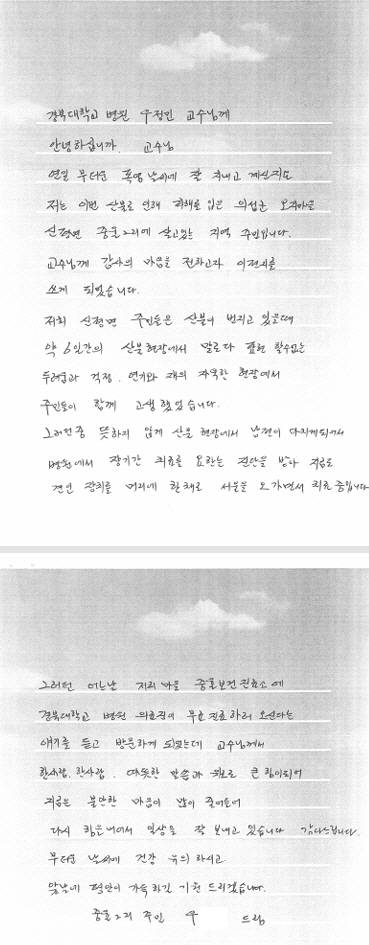 경북대학교 병원 우정민 교수님께
안녕하십니까. 교수님
연일 무더운 폭염 날씨에 잘 지내고 계신지요
저는 이번 산불로 인해 피해를 입은 의성군 오지마을
신평면 중율2리에 살고있는 지역 주민입니다.
교수님께 감사의 마음을 전하고자 이편지를
쓰게 되었습니다.
저희 신평면 주민들은 산불이 번지고 있을때
약 6일간의 산불현장에서 말로다 표현 할수없는
두려움과 걱정. 연기와 재의 자욱한 현장에서
주민들이 함께 고생 했었습니다.
그러던중 뜻하지 않게 산불 현장에서 남편이 다치게되어서
병원에서 장기간 치료를 요한는 진단을 받아 지금도
견인 장치를 머리에 한채로 서울을 오가면서 치료중입니다
그러던 어느날 저희 마을 중율보건진료소에
경북대학교 병원 의료진이 무료진료하러 오신다는
얘기를 듣고 방문하게 되었는데 교수님께서
한사람. 한사람. 따뜻한 말씀과 위로로 큰힘이되어
지금은 불안한 마음이 많이 줄어들어
다시 힘을내어서 일상을 잘 보내고 있습니다 감사드립니다.
무더운 날씨에 건강 유의 하시고
앞날에 평안이 가득하길 기원 드리겠습니다.
중율2리 주민 우 드림